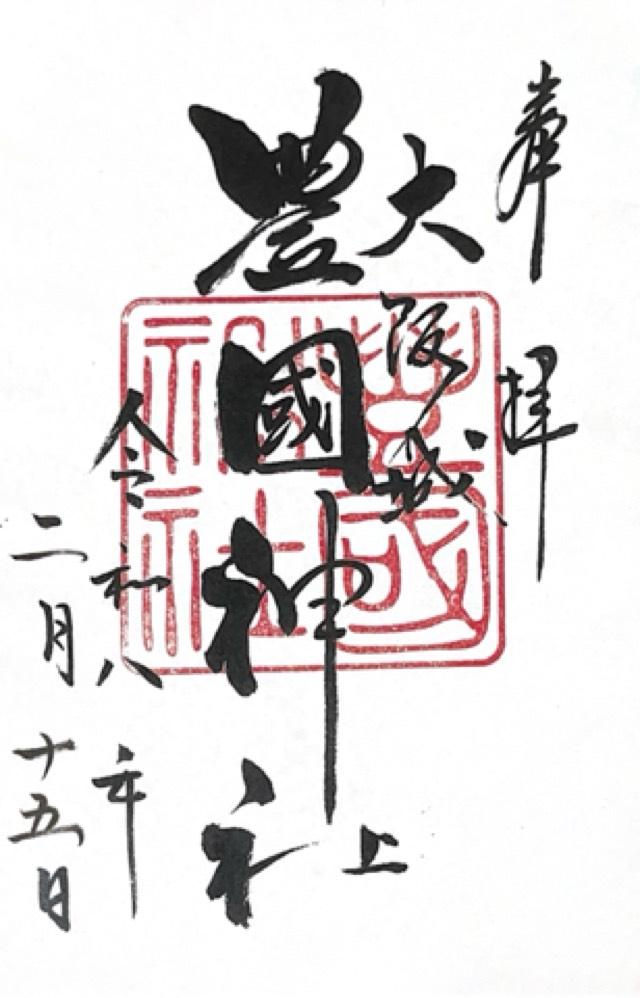 奉拝
大阪城
豊國神社
令和八年
二月十五日
豐國神社